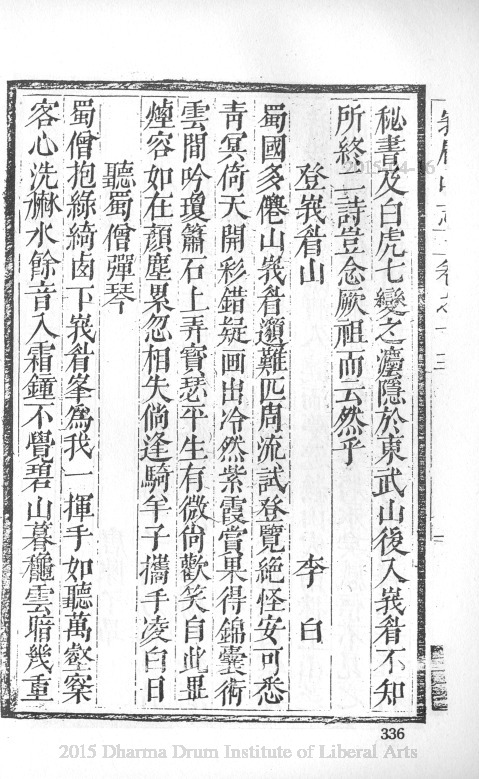 秘書及白虎七變之灋隱於東武山後入峩眉不知
所終二詩豈念厥祖而云然乎
登峩眉山 李白
蜀國多僊山峩眉邈難匹周流試登覽絶怪安可悉
靑冥倚天開彩錯疑画出冷然紫霞賞果得錦囊術
雲間吟瓊簫石上弄寳瑟平生有微尙歡笑自此畢
煙容如在顏塵累忽相失倘逢騎羊子攜手凌白日
聽蜀僧彈琴
蜀僧抱綠綺西下峩眉峯爲我一揮手如聽萬壑
客心洗流水餘音入霜鍾不覺碧山暮龝雲暗幾重
336
2015 Dharma Drum Institute of Liberal Arts